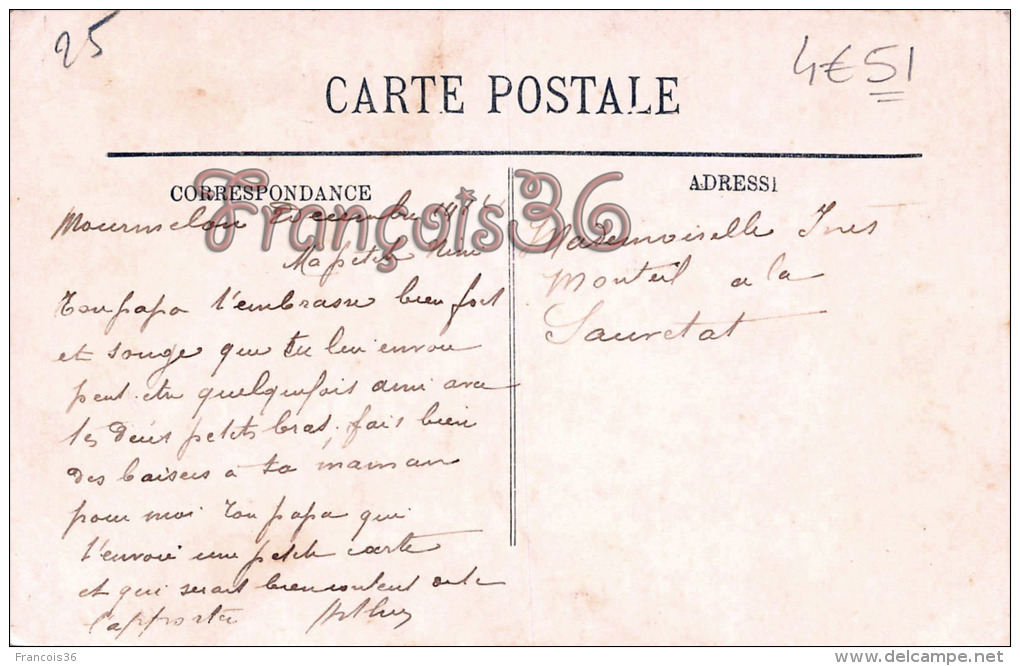 25
4€51
CARTE POSTALE
CORRESPONDANCE
ADRESSE
François36
Mourmelon Decembre
Ma petite Nini
Ton papa t'embrasse bien fort
et songe que tu lui envoie
peut etre quelquefois aussi avec
tes deux petits bras. fais bien
des baisers a ta maman
pour moi Ton papa qui
t'envoie une petite carte
et qui serait bien content de te
l'apporter Arthur
Mademoiselle Ines
Monteil a la
Sauvetat
François36
www.delcampe.net